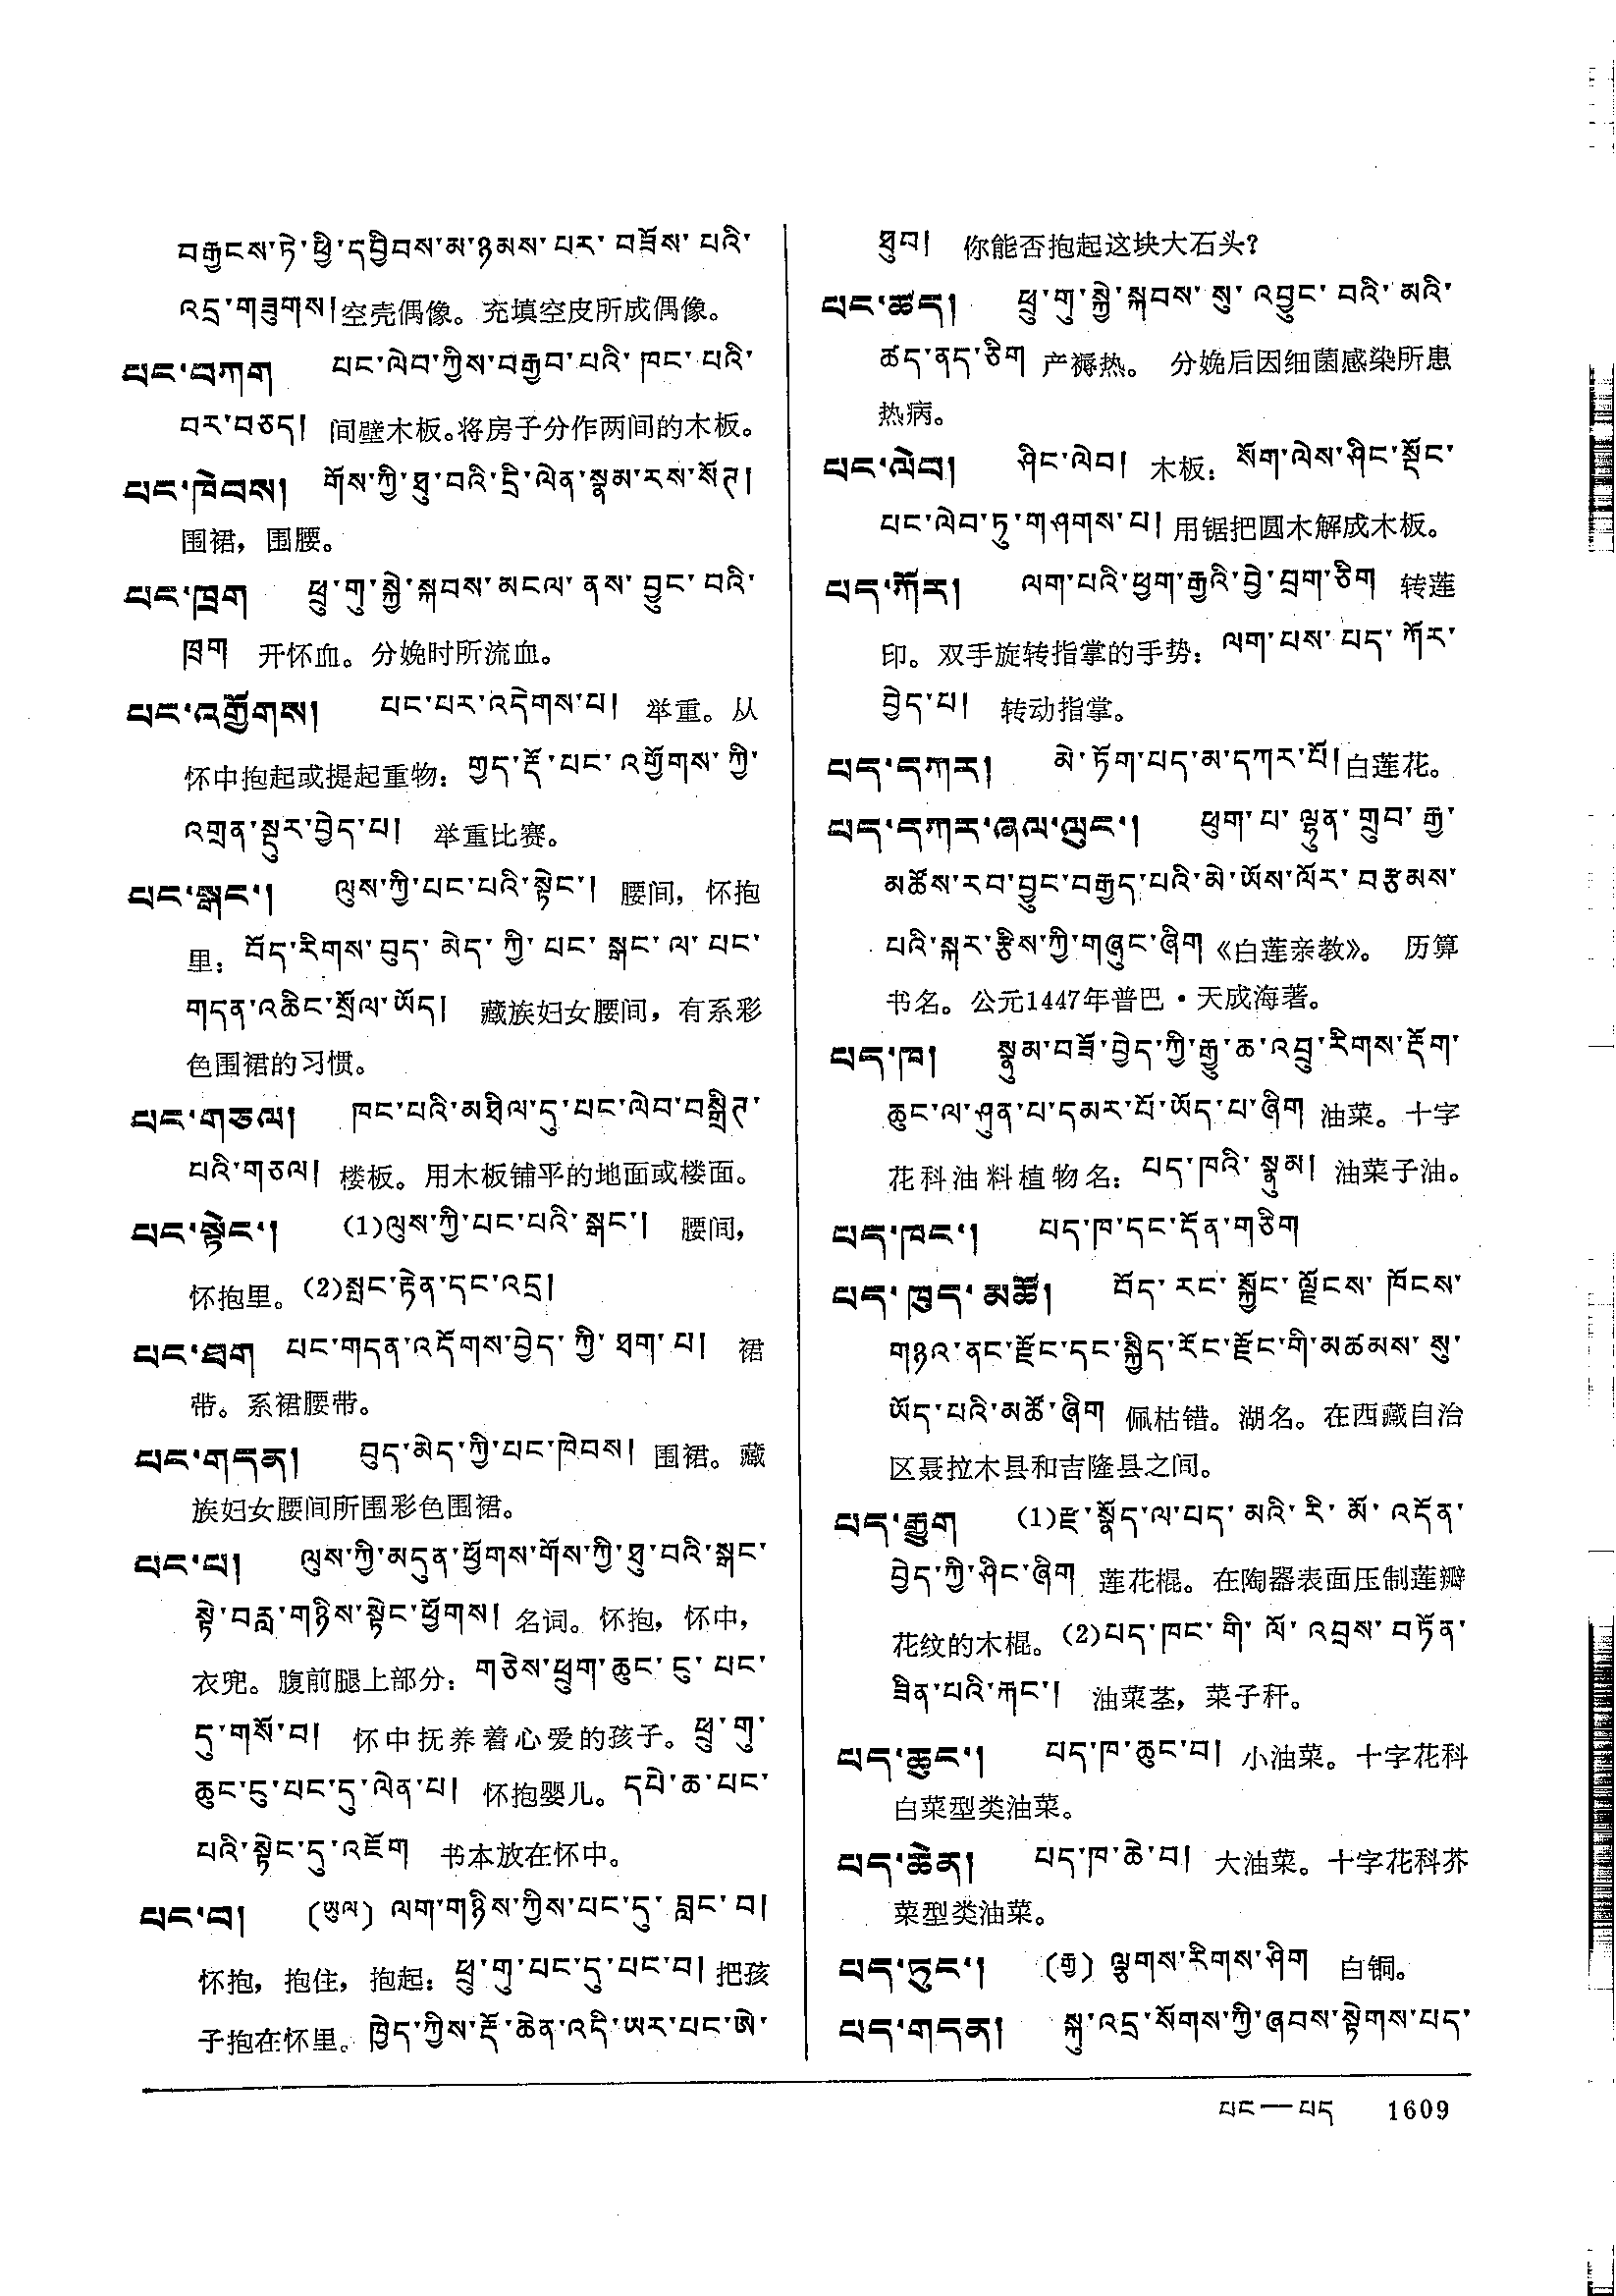 བརྒྱངས་ཏེ་ཕྱི་དབྱིབས་མ་ཉམས་པར་བཟོས་པའི་
འདྲ་གཟུགས། 空壳偶像。充填空皮所成偶像。
པང་བཀག པང་ལེབ་ཀྱིས་བརྒྱབ་པའི་ཁང་པའི་
བར་བཅད། 间壁木板。将房子分作两间的木板。
པང་ཁེབས། གོས་ཀྱི་ཐུ་བའི་དྲི་ལེན་སྣམ་རས་སོཊ།
围裙，围腰。
པང་ཁྲག ཕྲུ་གུ་སྐྱེ་སྐབས་མངལ་ནས་བྱུང་བའི་
ཁྲག 开怀血。分娩时所流血。
པང་འགྱོགས། པང་པར་འདེགས་པ། 举重。从
怀中抱起或提起重物：གྱད་རྡོ་པང་འགྱོགས་ཀྱི་
འགྲན་སྡུར་བྱེད་པ། 举重比赛。
པང་སྒང་། ལུས་ཀྱི་པང་པའི་སྟེང་། 腰间，怀抱
里：བོད་རིགས་བུད་མེད་ཀྱི་པང་སྒང་ལ་པང་
གདན་འཆིང་སྲོལ་ཡོད། 藏族妇女腰间，有系彩
色围裙的习惯。
པང་གཅལ། ཁང་པའི་མཐིལ་དུ་པང་ལེབ་བསྒྲིཊ་
པའི་གཅལ། 楼板。用木板铺平的地面或楼面。
པང་སྟེང་། (1)ལུས་ཀྱི་པང་པའི་སྒང་། 腰间，
怀抱里。(2)སྤང་རྟེན་དང་འདྲ།
པང་ཐག པང་གདན་འདོགས་བྱེད་ཀྱི་ཐག་པ། 裙
带。系裙腰带。
པང་གདན། བུད་མེད་ཀྱི་པང་ཁེབས། 围裙。藏
族妇女腰间所围彩色围裙。
པང་པ། ལུས་ཀྱི་མདུན་ཕྱོགས་གོས་ཀྱི་ཐུ་བའི་སྒང་
སྟེ་བརླ་གཉིས་སྟེང་ཕྱོགས། 名词。怀抱，怀中，
衣兜。腹前腿上部分：གཅེས་ཕྲུག་ཆུང་ངུ་པང་
དུ་གསོ་བ། 怀中抚养着心爱的孩子。ཕྲུ་གུ་
ཆུང་ངུ་པང་དུ་ལེན་པ། 怀抱婴儿。དཔེ་ཆ་པང་
པའི་སྟེང་དུ་འཇོག 书本放在怀中。
པང་བ། (ཡུལ) ལག་གཉིས་ཀྱིས་པང་དུ་བླང་བ།
怀抱，抱住，抱起：ཕྲུ་གུ་པང་དུ་པང་བ། 把孩
子抱在怀里。ཁྱེད་ཀྱིས་རྡོ་ཆེན་འདི་ཡར་པང་ཨེ་
ཐུབ། 你能否抱起这块大石头?
པང་ཚད། ཕྲུ་གུ་སྐྱེ་སྐབས་སུ་འབྱུང་བའི་མའི་
ཚད་ནད་ཅིག 产褥热。 分娩后因细菌感染所患
热病。
པང་ལེབ། ཤིང་ལེབ། 木板：སོག་ལེས་ཤིང་སྡོང་
པང་ལེབ་ཏུ་གཤགས་པ། 用锯把圆木解成木板。
པད་ཀོར། ལག་པའི་ཕྱག་རྒྱའི་བྱེ་བྲག་ཅིག 转莲
印。双手旋转指掌的手势：ལག་པས་པད་ཀོར་
བྱེད་པ། 转动指掌。
པད་དཀར། མེ་ཏོག་པད་མ་དཀར་པོ། 白莲花。
པད་དཀར་ཞལ་ལུང་། ཕུག་པ་ལྷུན་གྲུབ་རྒྱ་
མཚོས་རབ་བྱུང་བརྒྱད་པའི་མེ་ཡོས་ལོར་བརྩམས་
པའི་སྐར་རྩིས་ཀྱི་གཞུང་ཞིག 《白莲亲教》。 历算
书名。公元1447年普巴·天成海著。
པད་ཁ། སྣུམ་བཟོ་བྱེད་ཀྱི་རྒྱུ་ཆ་འབྲུ་རིགས་རྡོག་
ཆུང་ལ་ཤུན་པ་དམར་པོ་ཡོད་པ་ཞིག 油菜。十字
花科油料植物名：པད་ཁའི་སྣུམ། 油菜子油。
པད་ཁང་། པད་ཁ་དང་དོན་གཅིག
པད་ཁུད་མཚོ། བོད་རང་སྐྱོང་ལྗོངས་ཁོངས་
གཉའ་ནང་རྫོང་དང་སྐྱིད་རོང་རྫོང་གི་མཚམས་སུ་
ཡོད་པའི་མཚོ་ཞིག 佩枯错。湖名。在西藏自治
区聂拉木县和吉隆县之间。
པད་རྒྱུག (1)རྫ་སྣོད་ལ་པད་མའི་རི་མོ་འདོན་
བྱེད་ཀྱི་ཤིང་ཞིག 莲花棍。在陶器表面压制莲瓣
花纹的木棍。(2)པད་ཁང་གི་ལོ་འབྲས་བཏོན་
ཟིན་པའི་རྐང་། 油菜茎，菜子秆。
པད་ཆུང་། པད་ཁ་ཆུང་བ། 小油菜。十字花科
白菜型类油菜。
པད་ཆེན། པད་ཁ་ཆེ་བ། 大油菜。十字花科芥
菜型类油菜。
པད་ཏུང་། (རྒྱ) ལྕགས་རིགས་ཤིག 白铜。
པད་གདན། སྐུ་འདྲ་སོགས་ཀྱི་ཞབས་སྟེགས་པད་
པང—པད 1609